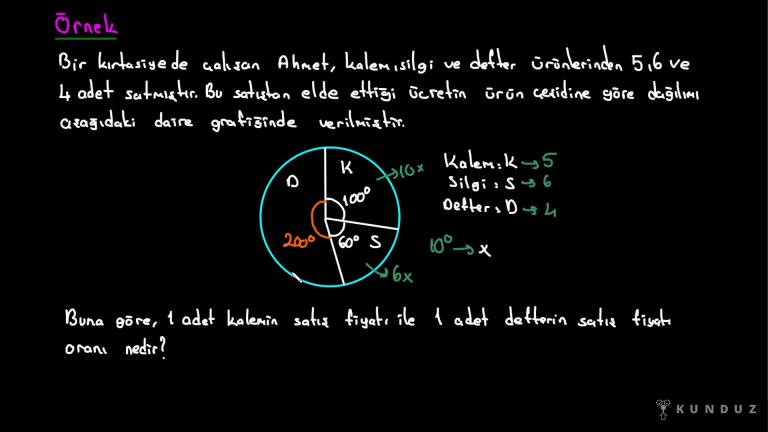 Örnek
Bir kırtasiyede çalışan Ahmet, kalem,silgi ve defter ürünlerinden 5,6 ve
4 adet satmıştır. Bu satıştan elde ettiği ücretin ürün çeşidine göre dağılımı
aşağıdaki daire grafiğinde verilmiştir.
K
10x
D
100°
200°
60° S
6x
Kalem: K → 5
Silgi : S → 6
Defter: D → 4
10° → x
Buna göre, 1 adet kalemin satış fiyatı ile 1 adet defterin satış fiyatı
oranı nedir?
KUNDUZ